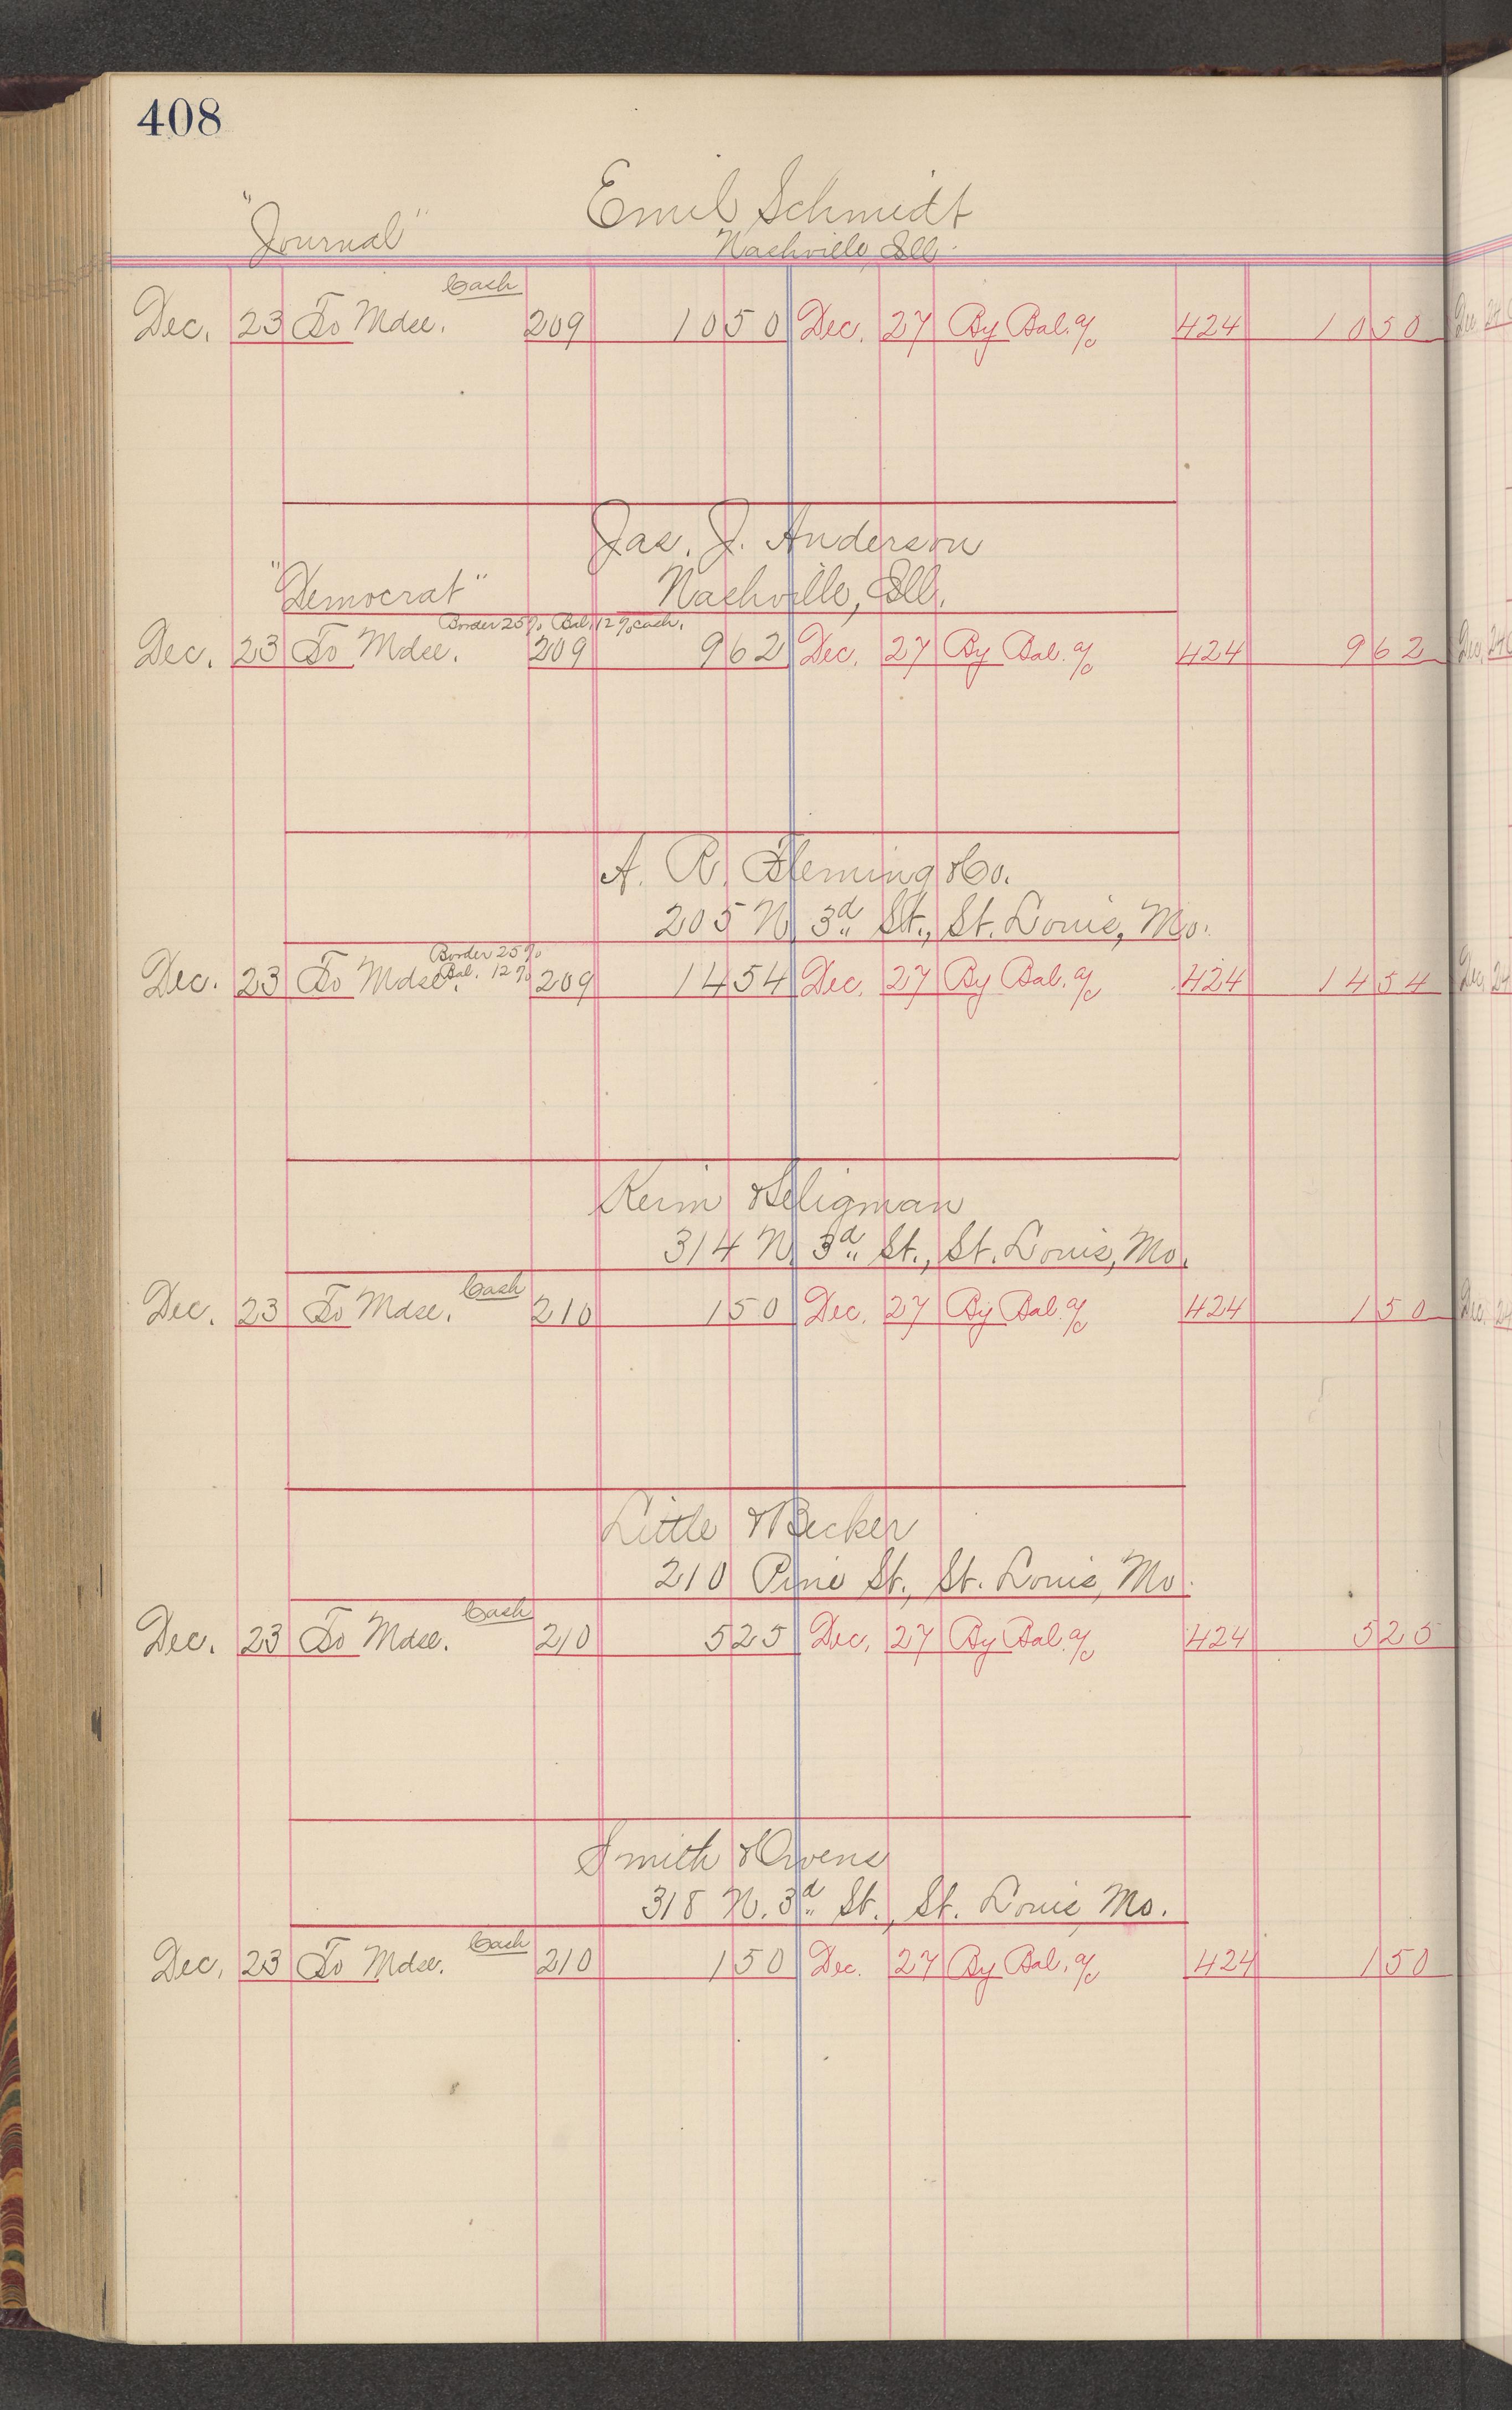 408
Emil Schmidt
"Journal"
Nashville, Ill.
Cash
Dec. 23 To Mdse. 209 10 50 Dec. 27 By Bal. a/c 424 10 50
Jas. J. Anderson
"Democrat" Nashville, Ill.
Border 25% Bal. 12% cash.
Dec. 23 To Mdse. 209 9 62 Dec. 27 By Bal. a/c 424 9 62
A. R. Fleming & Co.
205 N. 3d St., St. Louis, Mo.
Border 25%
Bal. 12%
Dec. 23 To Mdse. 209 14 54 Dec. 27 By Bal. a/c 424 14 54
& Seligman
314 N. 3d St., St. Louis, Mo.
Cash
Dec. 23 To Mdse. 210 1 50 Dec. 27 By Bal. a/c 424 1 50
Little & Becker
210 Pine St., St. Louis, Mo.
Cash
Dec. 23 To Mdse. 210 5 25 Dec. 27 By Bal. a/c 424 5 25
Smith & Owens
318 N. 3d St., St. Louis, Mo.
Cash
Dec. 23 To Mdse. 210 1 50 Dec. 27 By Bal. a/c 424 1 50